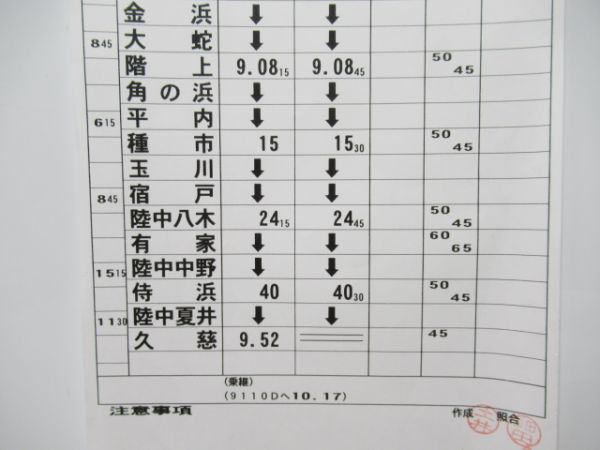 金浜
大蛇
845
階上 9.08 15 9.08 45 50 45
角の浜
平内
615
種市 15 15 30 50 45
玉川
宿戸
845
陸中八木 24 15 24 45 50 45
有家 60 65
陸中中野
15 15
侍浜 40 40 30 50 45
陸中夏井
11 30
久慈 9.52 45
(乗継)
(9110Dへ10.17)
注意事項 作成 照合